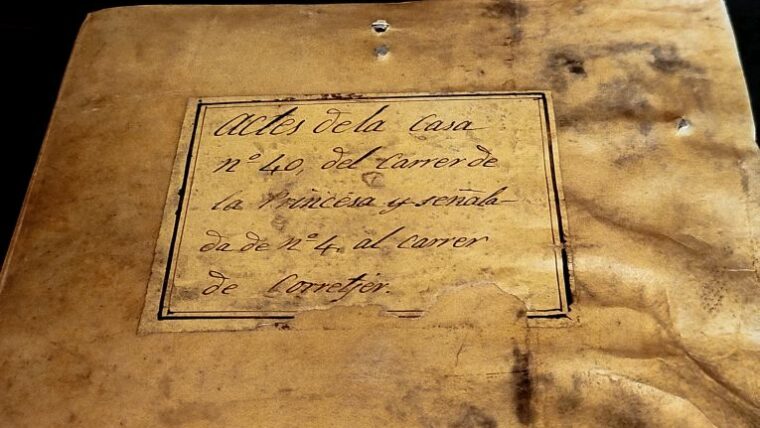 Actes de la Casa
nº 40, del Carrer de
la Princesa y señala-
da de nº 4, al carrer
de Corretjer.